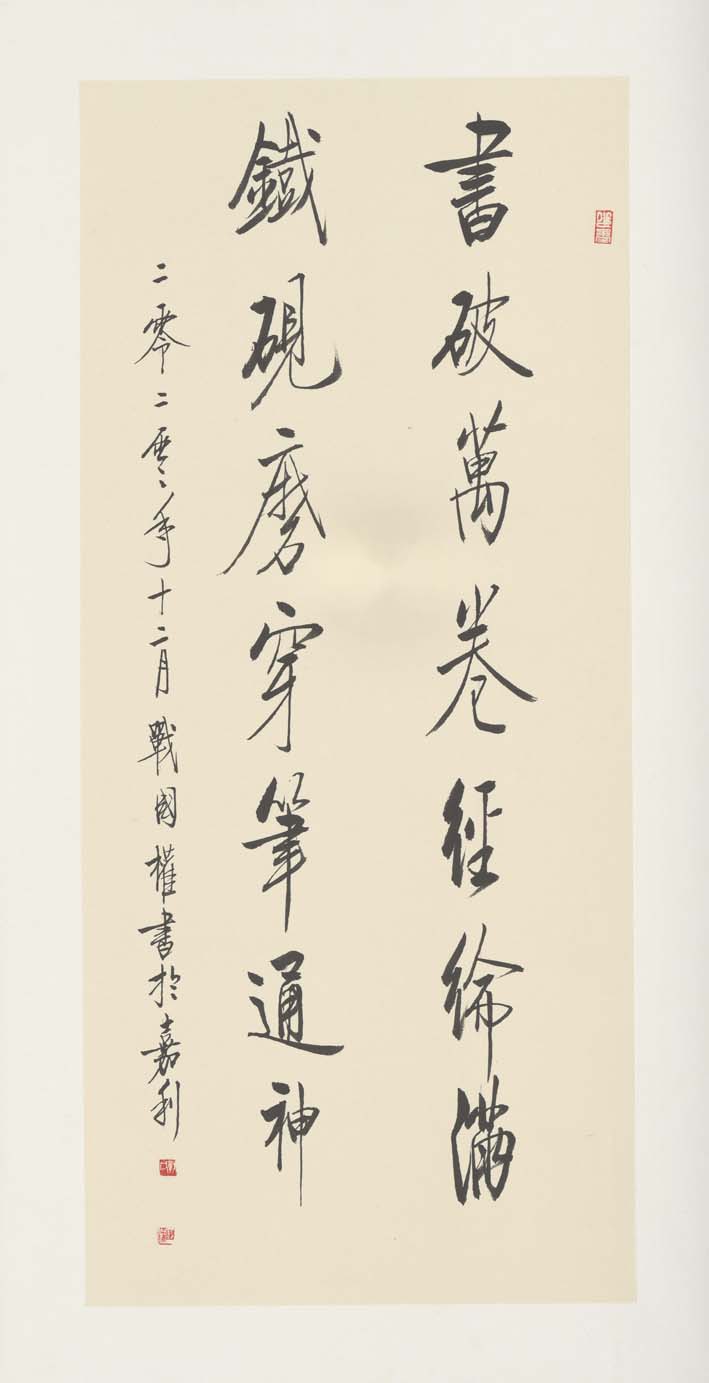 書破萬卷經綸滿
鐵硯磨穿筆通神
二零二零年十二月戰國權書於嘉利